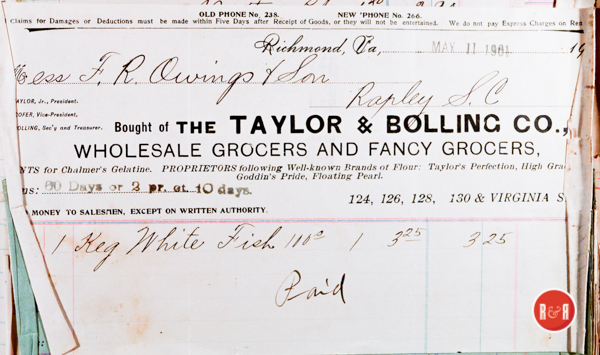 OLD PHONE No. 238. NEW 'PHONE No. 266.
Claims for Damages or Deductions must be made within Five Days after Receipt of Goods, or they will not be entertained. We do not pay Express Charges on
Richmond, Va, MAY 11 1901 19
ess F. R. Owings & Son
Rapley S. C
AYLOR, Jr., President.
OFER, Vice-President.
OLLING, Sec'y and Treasurer. Bought of THE TAYLOR & BOLLING CO.,
WHOLESALE GROCERS AND FANCY GROCERS,
NTS for Chalmer's Gelatine. PROPRIETORS following Well-known Brands of Flour: Taylor's Perfection, High Gra
Goddin's Pride, Floating Pearl.
us: 60 Days or 2 pr. ct. 10 days.
124, 126, 128, 130 & VIRGINIA S
MONEY TO SALESMEN, EXCEPT ON WRITTEN AUTHORITY.
1 Keg White Fish 1 3 25 3 25
Paid
R&R